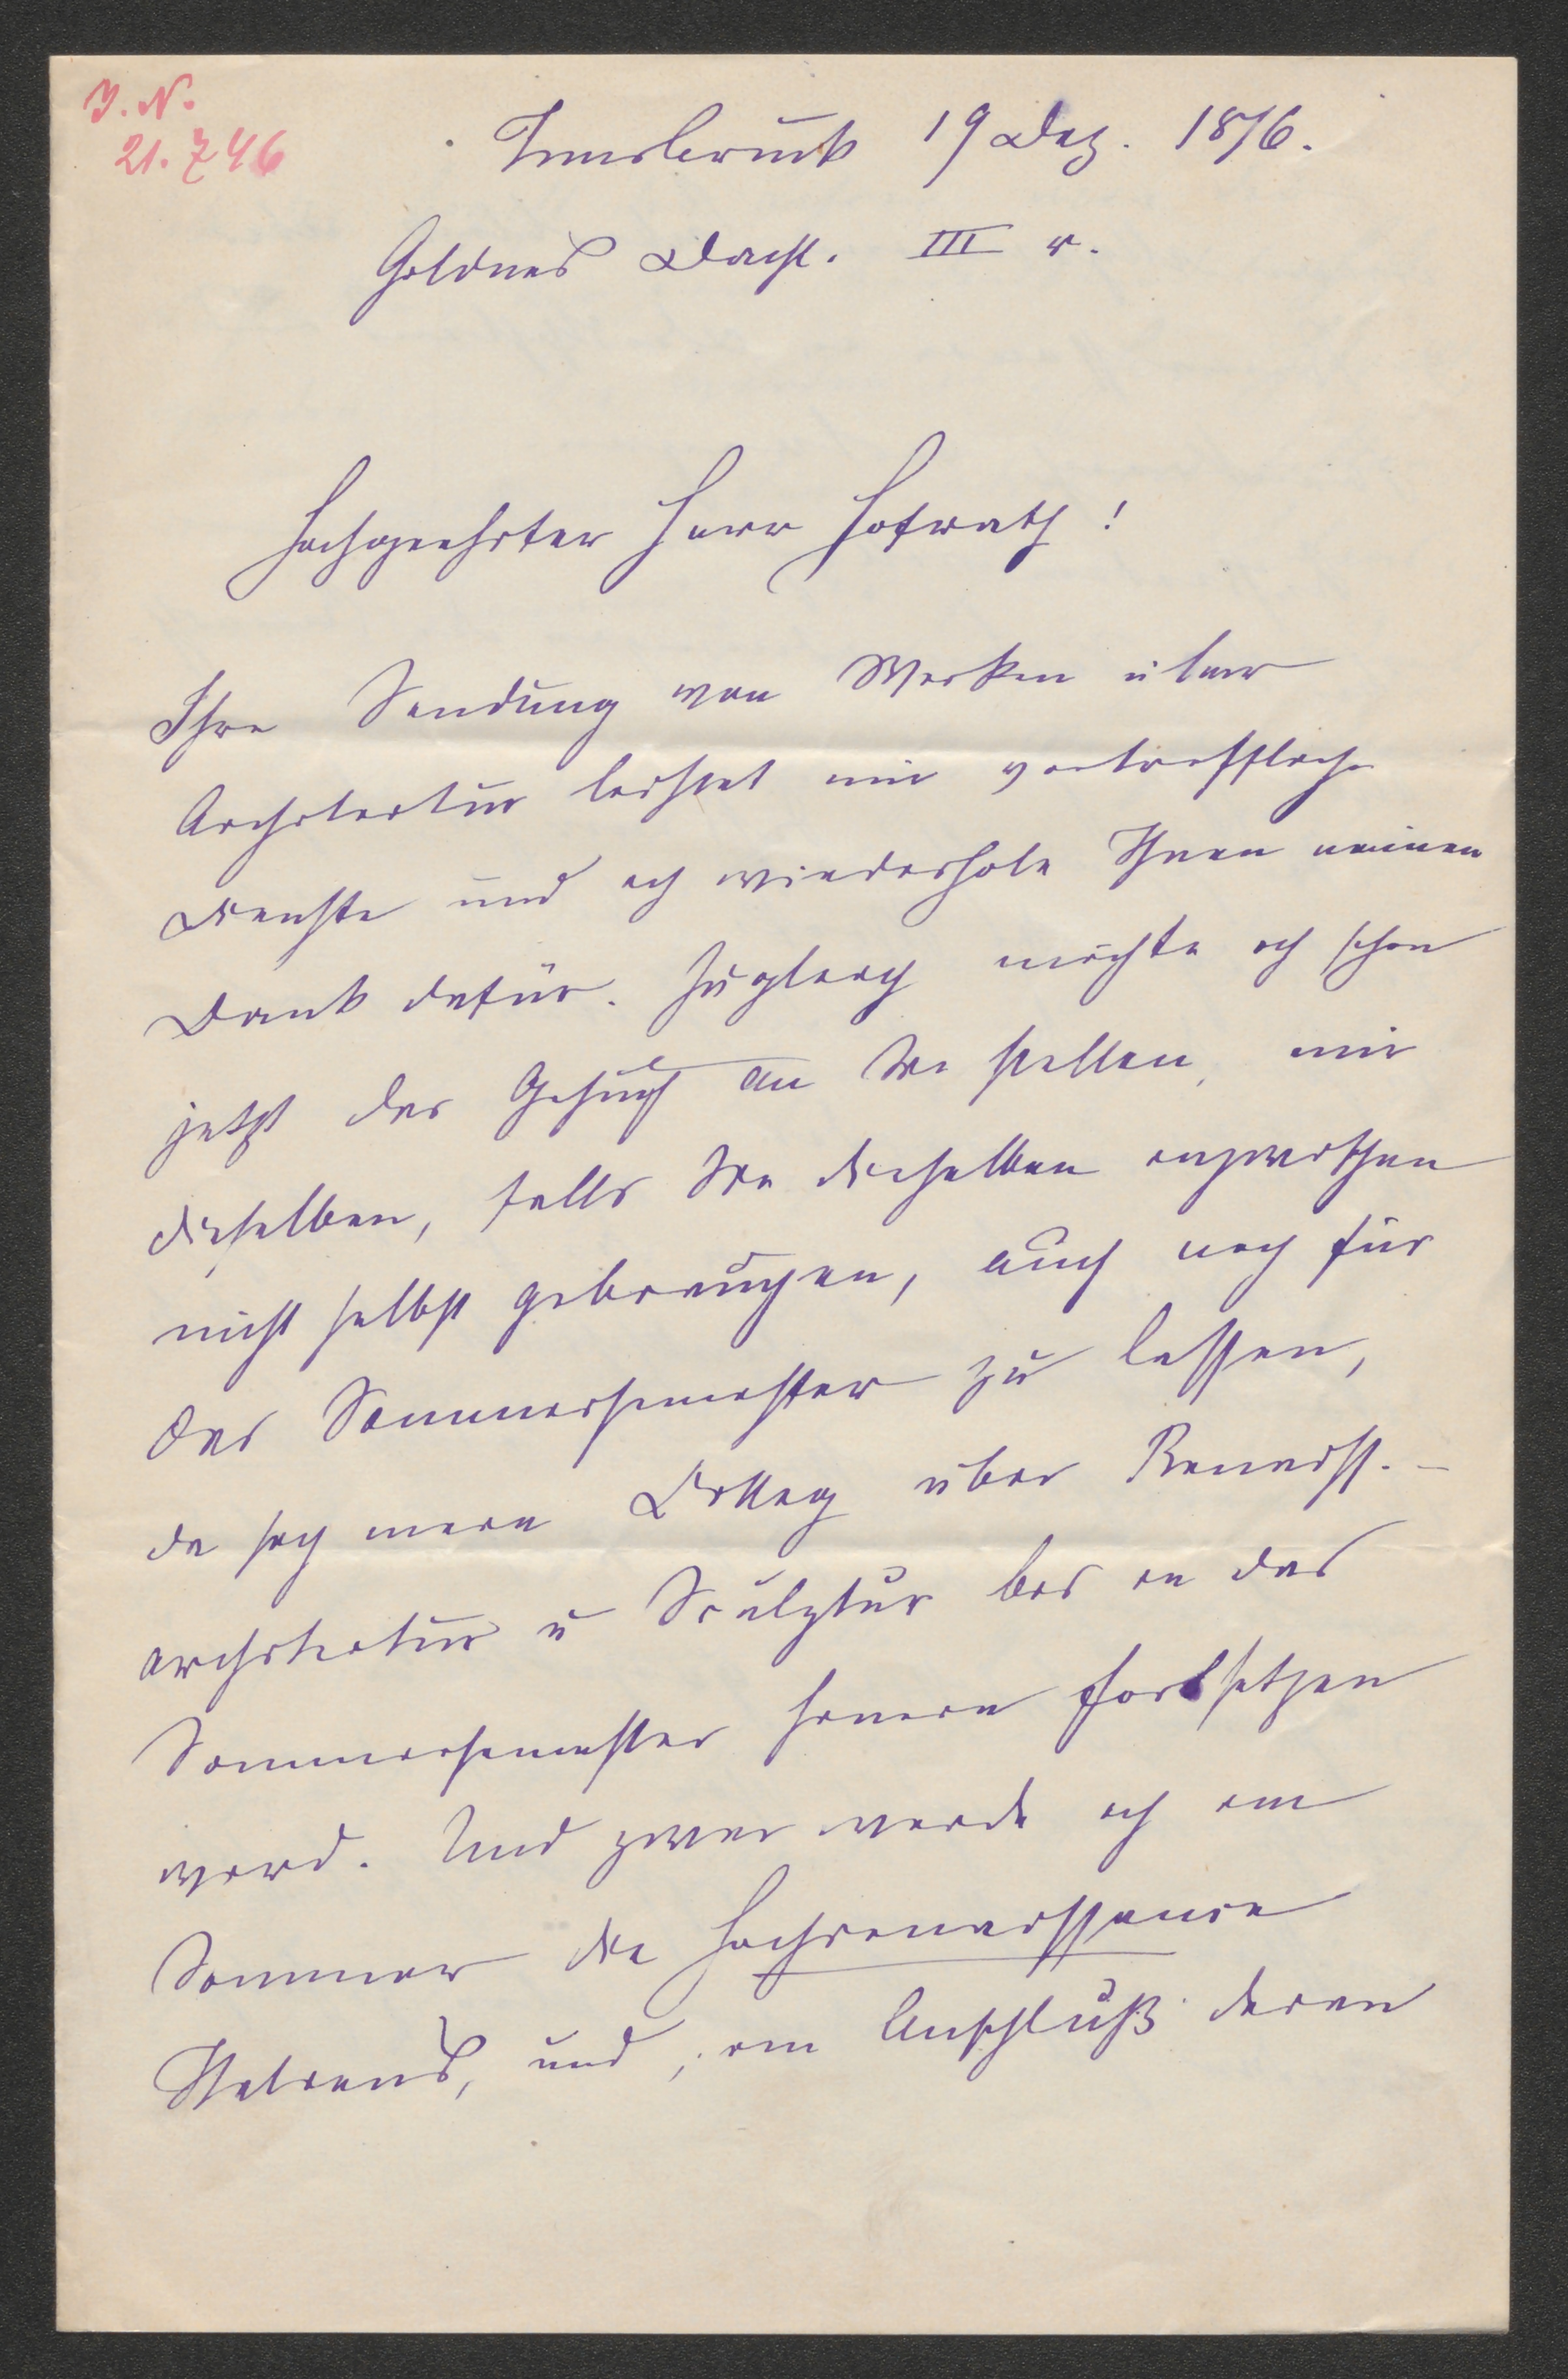 I. N.
21.746
Innsbruck 19 Dez. 1876.
Goldnes Dachl. III r.
Hochgeehrter Herr Hofrath!
Ihre Sendung von Werken über
Architectur leistet mir vortreffliche
Dienste und ich wiederhole Ihnen meinen
Dank dafür. Zugleich möchte ich schon
jetzt das Gesuch an Sie stellen, mir
dieselben, falls Sie dieselben inzwischen
nicht selbst gebrauchen, auch noch für
das Sommersemester zu lassen,
da sich mein Colleg über Renaiss.-
architectur u Sculptur bis in das
Sommersemester hinein fortsetzen
wird. Und zwar werde ich im
Sommer die Hochrenaissance
Italiens, und, im Anschluß daran